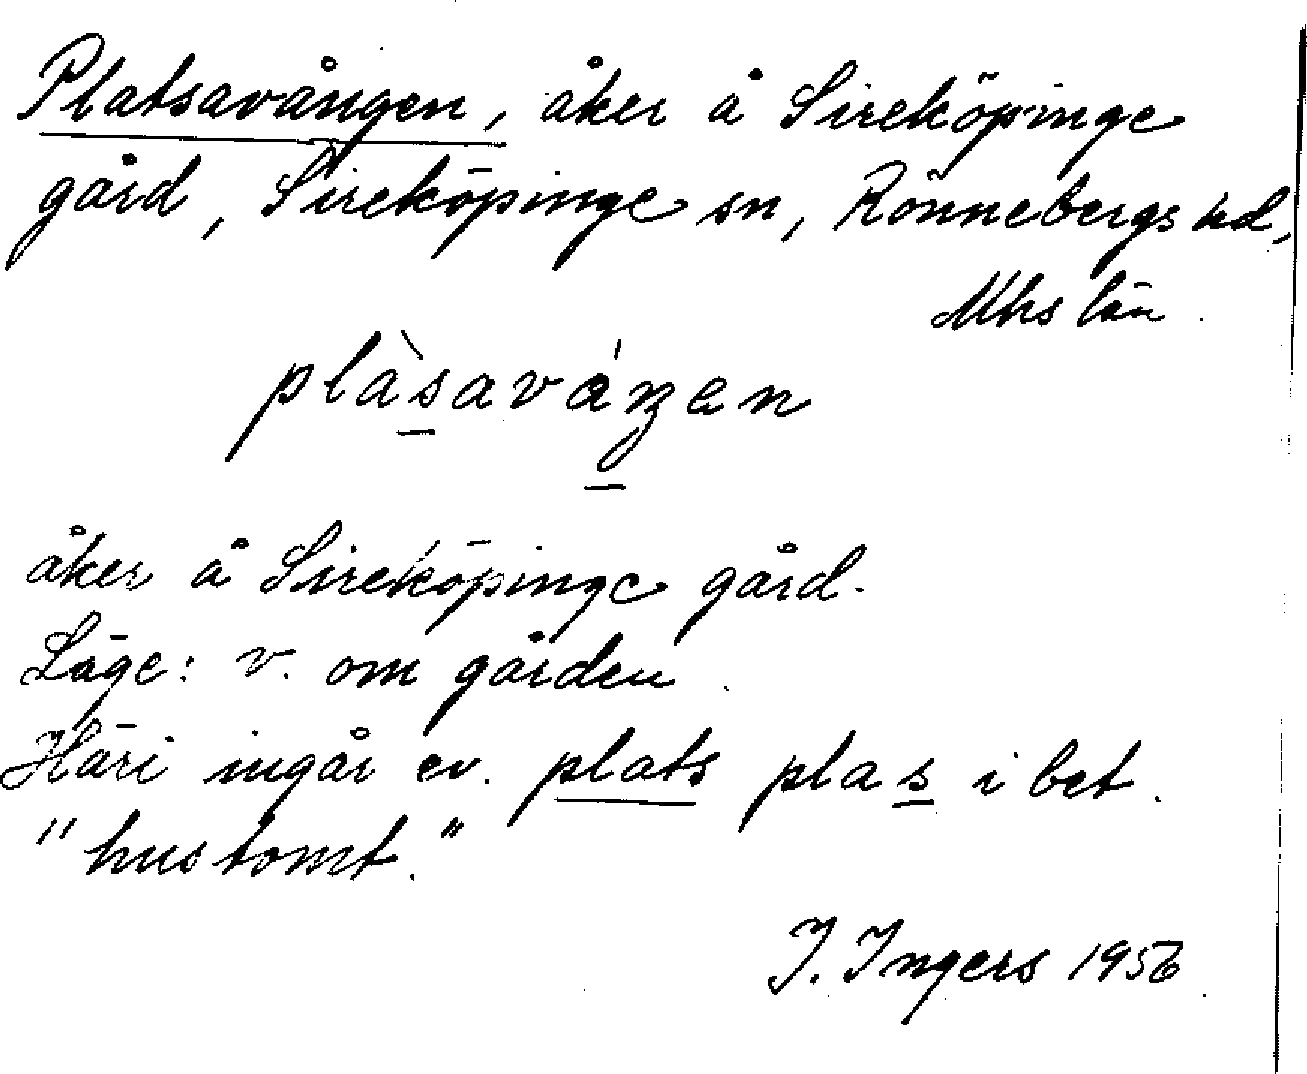 Platsavången, åker å Sireköpinge
gård, Sireköpinge sn, Rönnebergs hd,
Mhs län.
plàsavá̊ŋen
åker å Sireköpinge gård.
Läge: v. om gården.
Häri ingår ev. plats plas i bet.
"hustomt."
I. Ingers 1956.